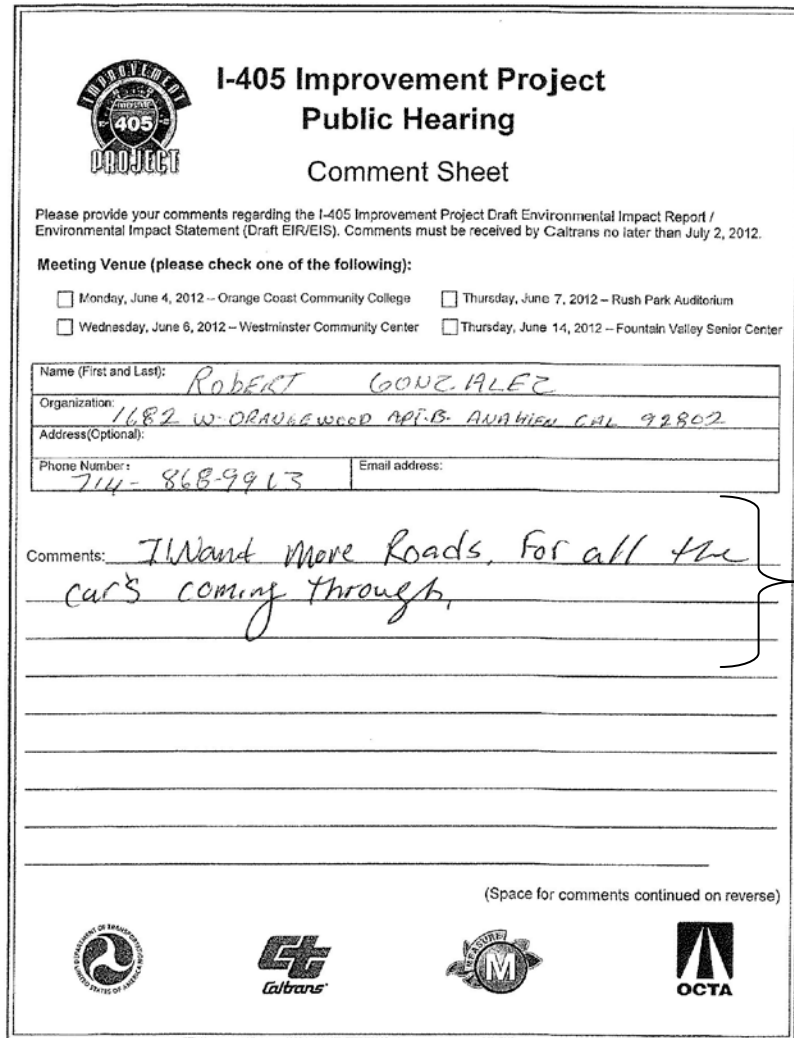 IMPROVEMENT
INTERSTATE
405
PROJECT
I-405 Improvement Project
Public Hearing
Comment Sheet
Please provide your comments regarding the I-405 Improvement Project Draft Environmental Impact Report /
Environmental Impact Statement (Draft EIR/EIS). Comments must be received by Caltrans no later than July 2, 2012.
Meeting Venue (please check one of the following):
Monday, June 4, 2012 – Orange Coast Community College
Thursday, June 7, 2012 – Rush Park Auditorium
Wednesday, June 6, 2012 – Westminster Community Center
Thursday, June 14, 2012 – Fountain Valley Senior Center
Name (First and Last): RobERT GONZALEZ
Organization: 1682 W. ORANGEWOOD APT.B. ANAHIEN CAL 92802
Address(Optional):
Phone Number: 714-868-9913
Email address:
Comments: I Want More Roads, For all the
car's coming through,
(Space for comments continued on reverse)
DEPARTMENT OF TRANSPORTATION
UNITED STATES OF AMERICA
Ct
Caltrans
MEASURE
M
OCTA